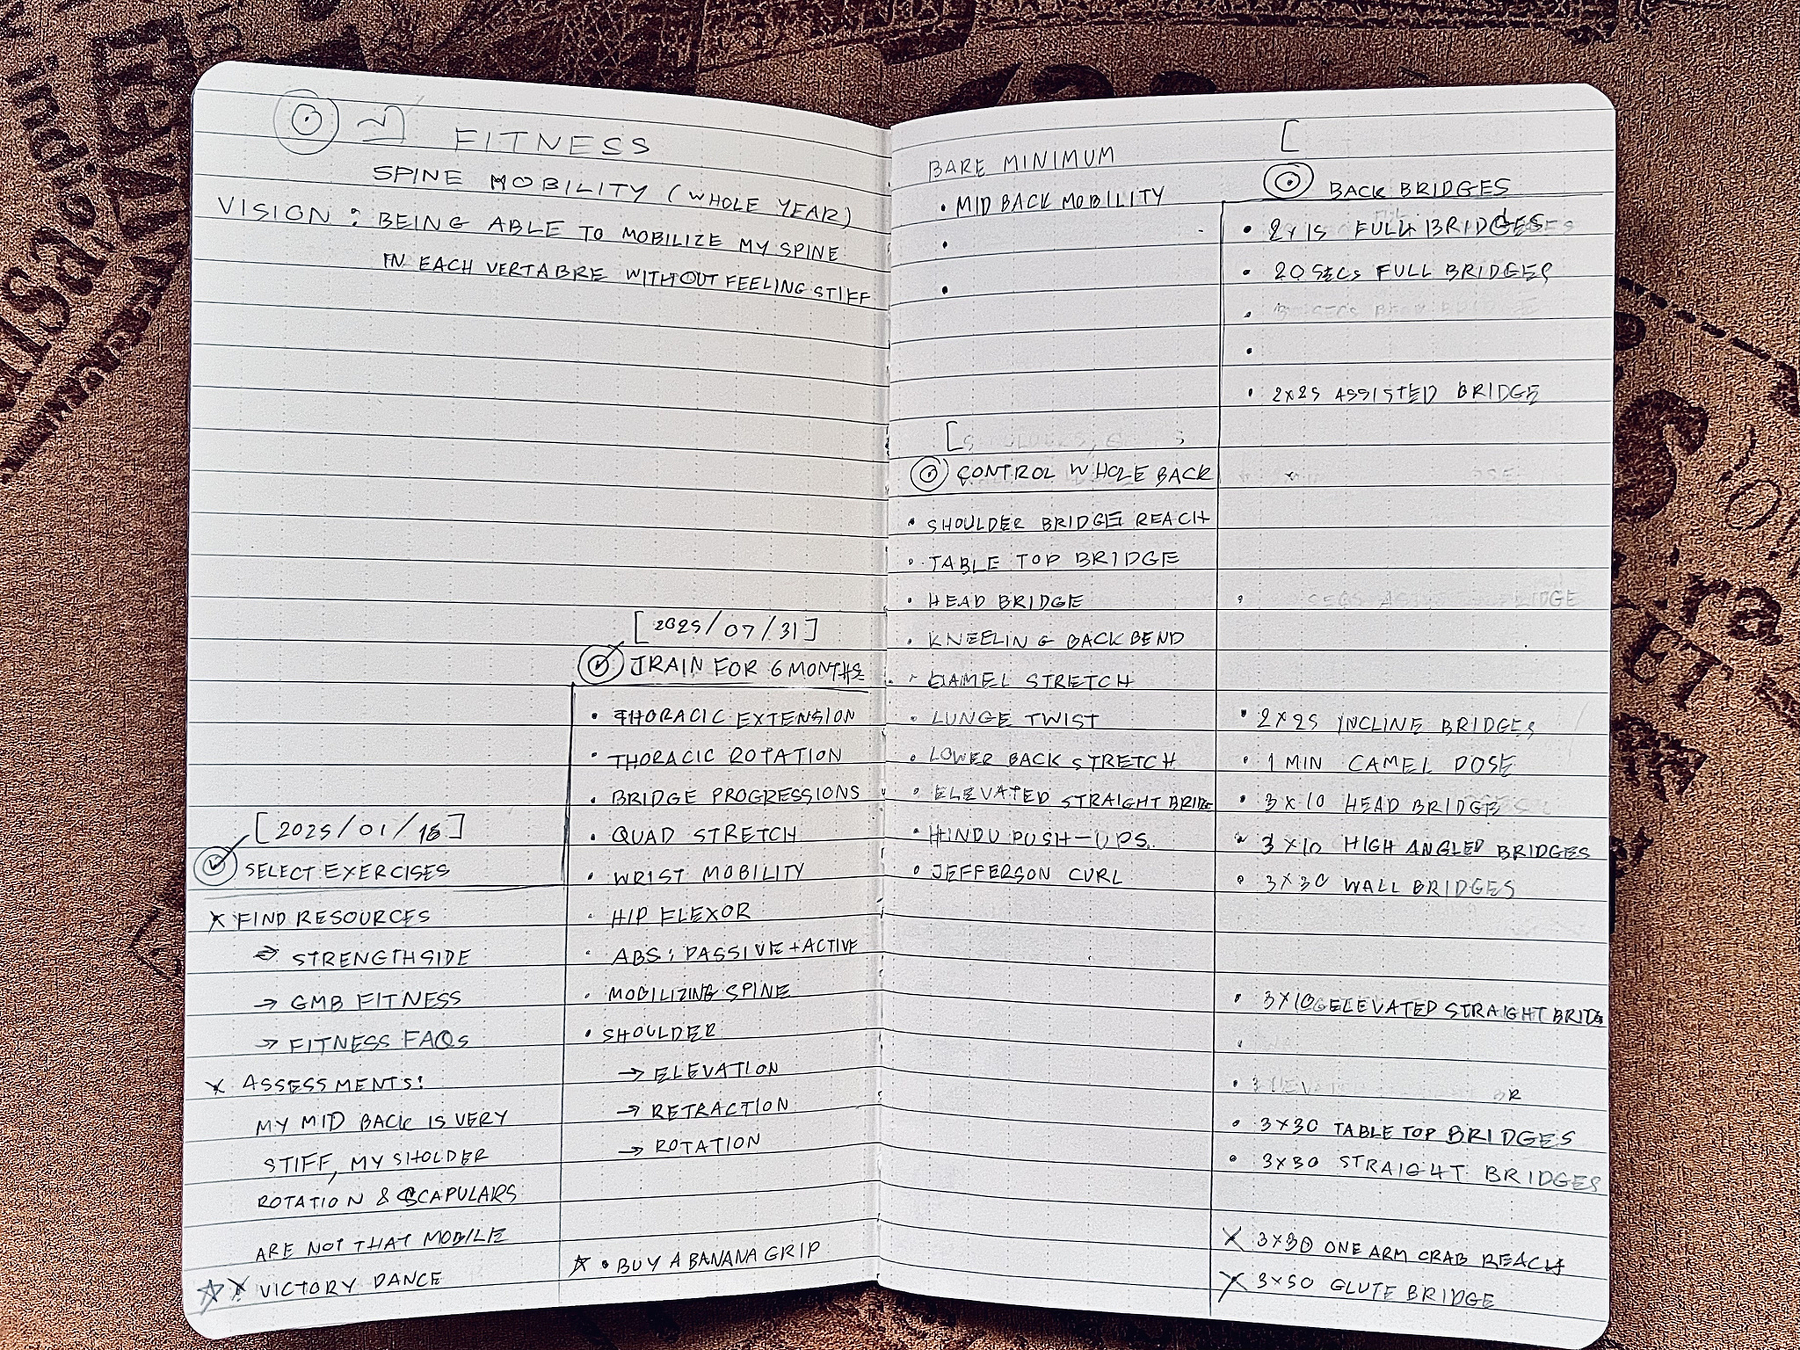 FITNESS
SPINE MOBILITY (WHOLE YEAR)
VISION : BEING ABLE TO MOBILIZE MY SPINE
IN EACH VERTABRE WITHOUT FEELING STIFF
[2025/07/31]
TRAIN FOR 6 MONTHS
• THORACIC EXTENSION
• THORACIC ROTATION
• BRIDGE PROGRESSIONS
• QUAD STRETCH
• WRIST MOBILITY
• HIP FLEXOR
• ABS : PASSIVE + ACTIVE
• MOBILIZING SPINE
• SHOULDER
→ ELEVATION
→ RETRACTION
→ ROTATION
☆ • BUY A BANANA GRIP
[2025/01/18]
SELECT EXERCISES
X FIND RESOURCES
→ STRENGTHSIDE
→ GMB FITNESS
→ FITNESS FAQs
X ASSESSMENTS:
MY MID BACK IS VERY
STIFF, MY SHOLDER
ROTATION & SCAPULARS
ARE NOT THAT MOBILE
☆ X VICTORY DANCE
BARE MINIMUM
• MID BACK MOBILITY
•
•
[
CONTROL WHOLE BACK
• SHOULDER BRIDGE REACH
• TABLE TOP BRIDGE
• HEAD BRIDGE
• KNEELING BACK BEND
• CAMEL STRETCH
• LUNGE TWIST
• LOWER BACK STRETCH
• ELEVATED STRAIGHT BRIDGE
• HINDU PUSH-UPS
• JEFFERSON CURL
[
BACK BRIDGES
• 2x15 FULL BRIDGES
• 20 SECS FULL BRIDGES
•
•
• 2x25 ASSISTED BRIDGE
•
• 2x25 INCLINE BRIDGES
• 1 MIN CAMEL POSE
• 3x10 HEAD BRIDGE
• 3x10 HIGH ANGLED BRIDGES
• 3x30 WALL BRIDGES
• 3x10 ELEVATED STRAIGHT BRIDG
•
•
• 3x30 TABLE TOP BRIDGES
• 3x30 STRAIGHT BRIDGES
X 3x30 ONE ARM CRAB REACH
X 3x50 GLUTE BRIDGE